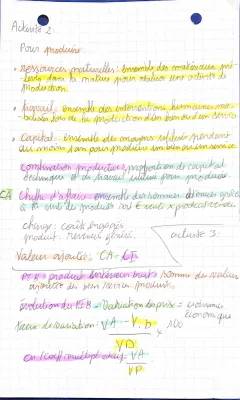 Activité 2
Pour produire
• ressources naturelles: ensemble des matières pré-
dans la nature pour réaliser une activité de
production.
• travail: ensemble des interventions humaines
production d'un bien ou d'un service
• capital: ensemble des moyens utilisés pendant
au moins 1 an pour produire un bien ou un service
combinaison productive, proportion de capital
technique et de travail utilisée pour produire
CA Chiffre d'affaire: ensemble des sommes obtenues après
la de produits
charge: coûts engagés
produit: revenus générés.
activité 3.
Valeur ajoutée: CA - CI
PIB = produit intérieur brut = somme des valeurs
ajoutées des biens produits.
évolution du PIB = = croissance
économique
taux de variation: VA - VD × 100
VD
en (coeff multiplicateur) VA
VD